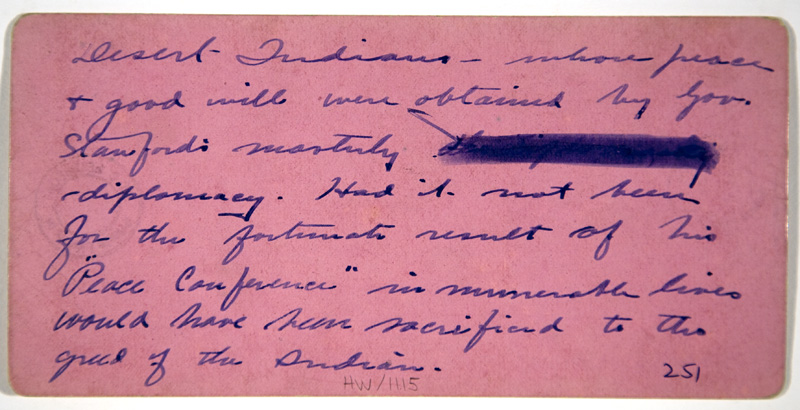 Desert Indians - whose peace
& good will were obtained by Gov.
Stanford's masterly
diplomacy. Had it not been
for the fortunate result of his
"Peace Conference" innumerable lives
would have been sacrificed to the
greed of the Indian.
251
HW/1115